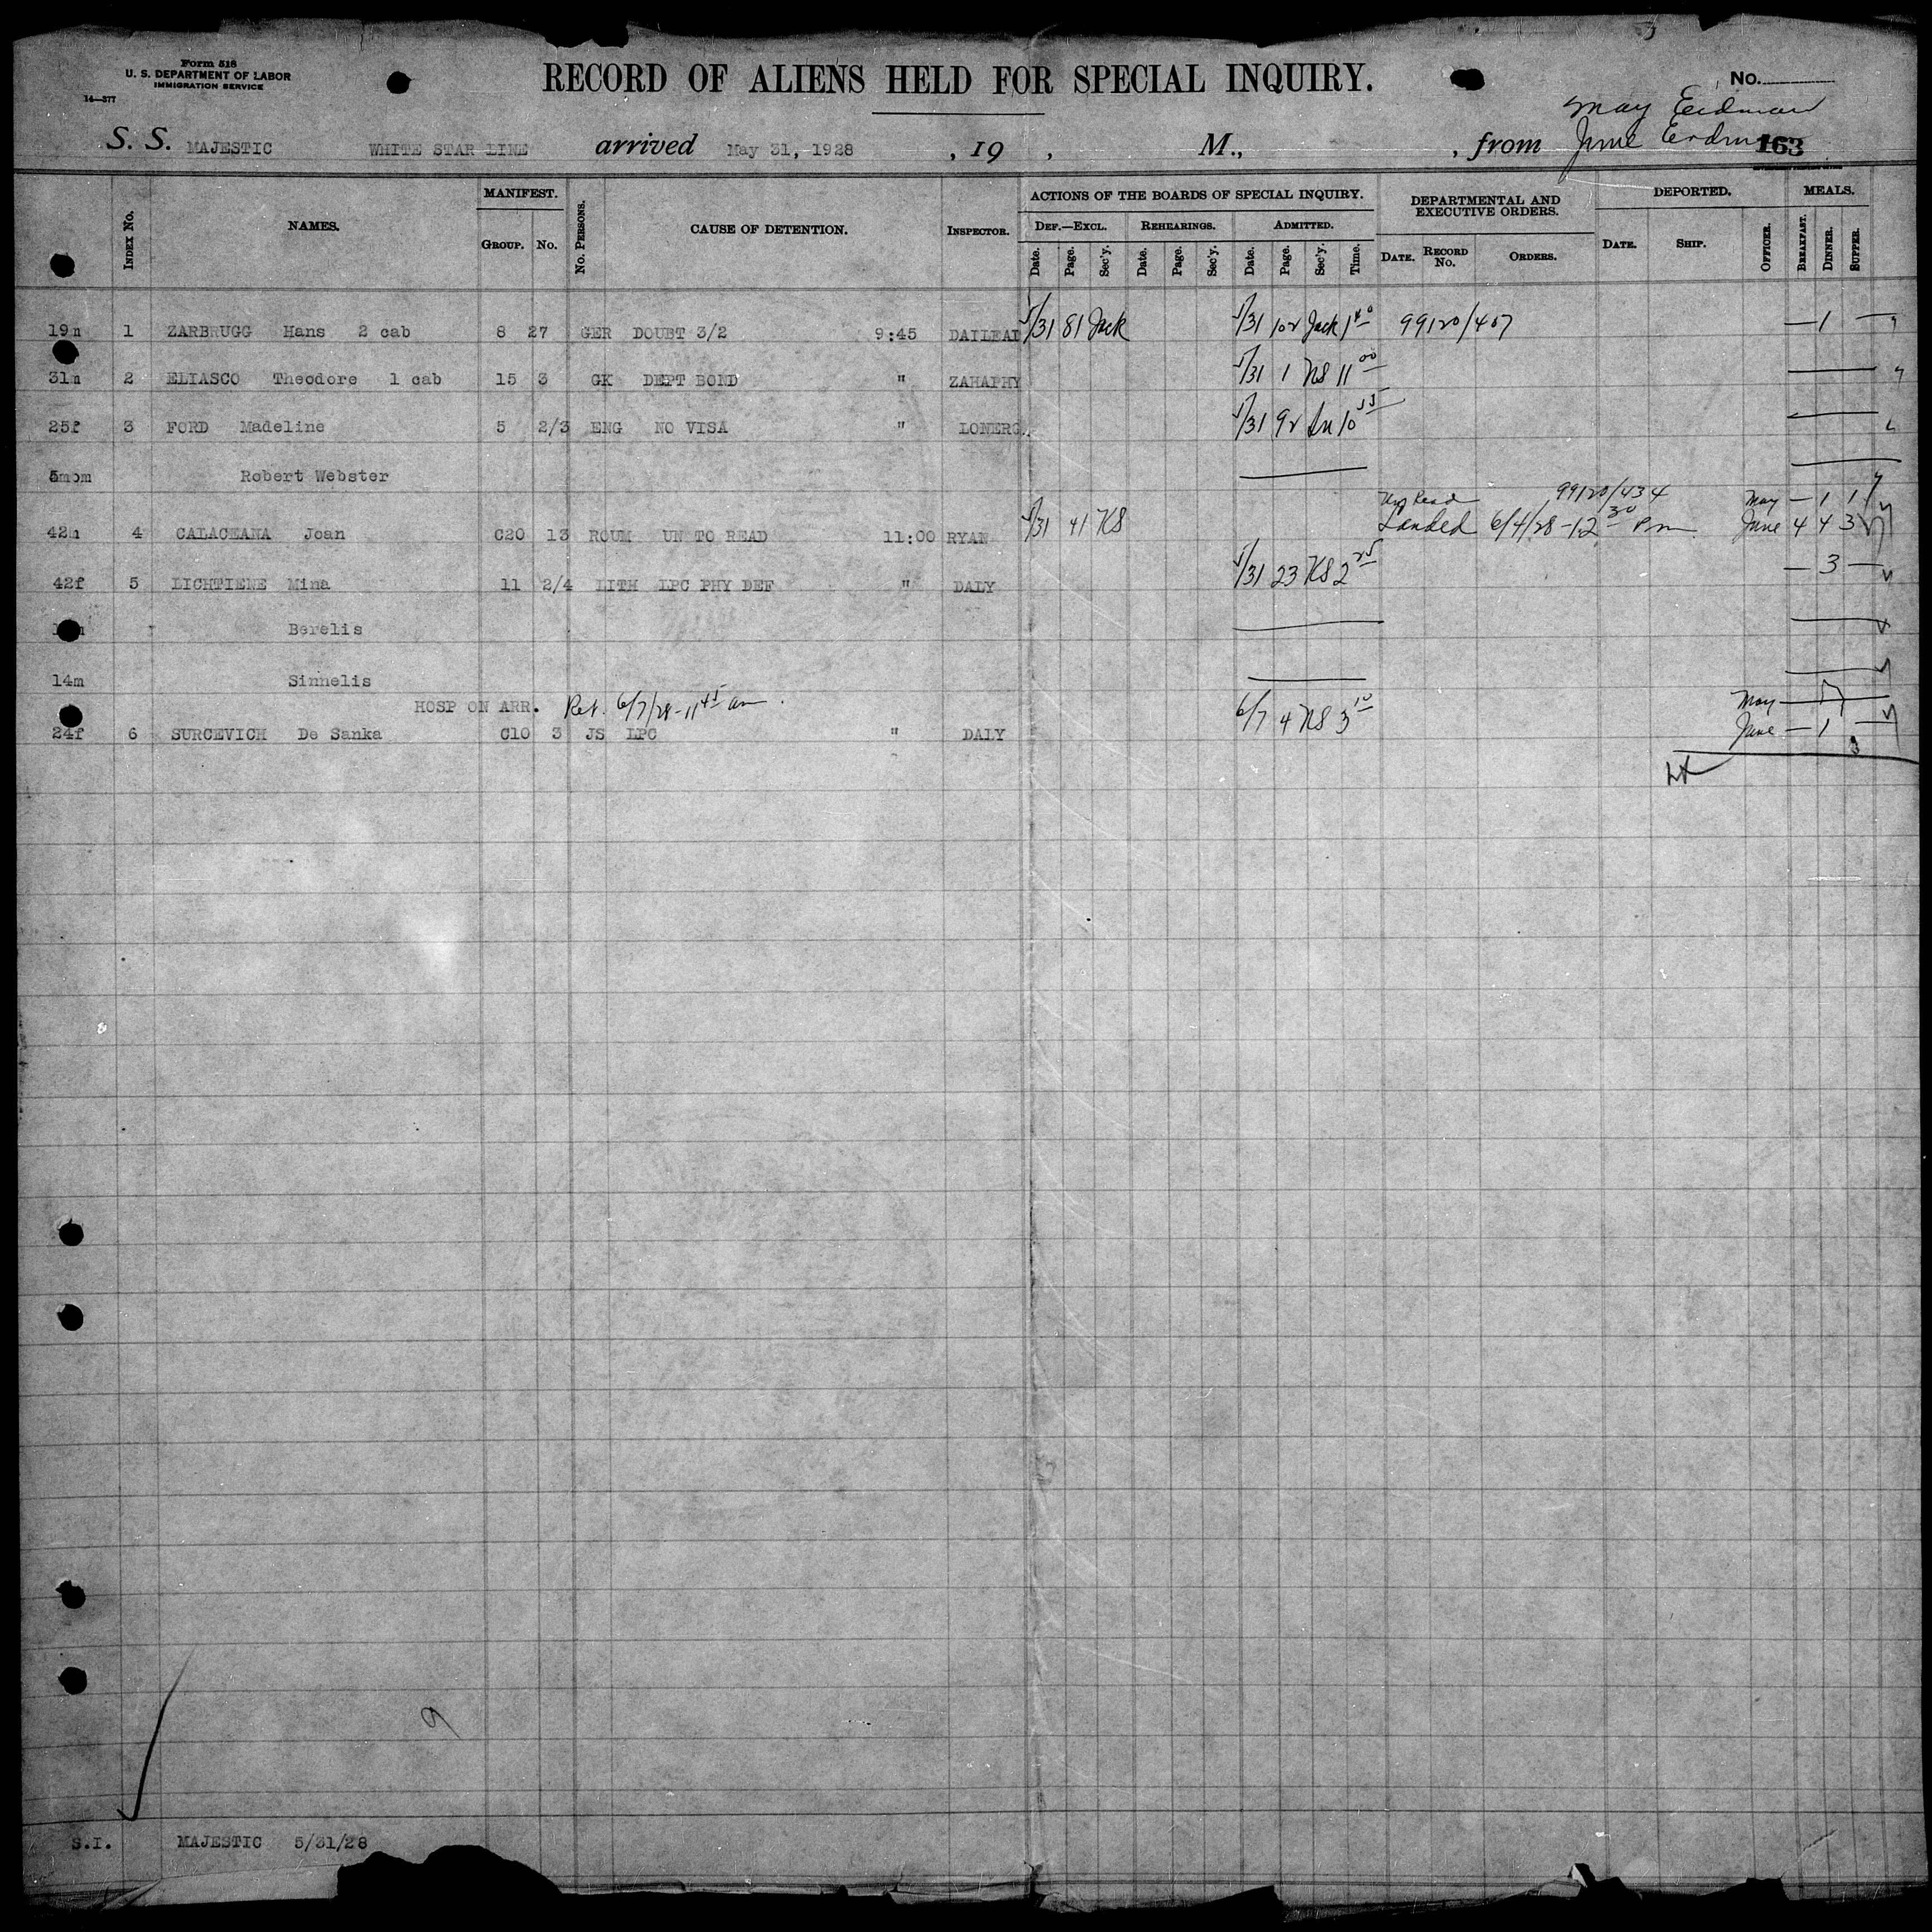 Form 518
U. S. DEPARTMENT OF LABOR
IMMIGRATION SERVICE
14—377
RECORD OF ALIENS HELD FOR SPECIAL INQUIRY.
No.
May Erdman
S. S. MAJESTIC WHITE STAR LINE arrived May 31, 1928 , 19 , M., , from June Erdman 163
MANIFEST. ACTIONS OF THE BOARDS OF SPECIAL INQUIRY. DEPARTMENTAL AND EXECUTIVE ORDERS. DEPORTED. MEALS.
Index No. NAMES. Group. No. No. Persons. CAUSE OF DETENTION. Inspector. Def.—Excl. Rehearings. Admitted.
Date. Page. Sec'y. Date. Page. Sec'y. Date. Page. Sec'y. Time. Date. Record No. Orders. Date. Ship. Officer. Breakfast. Dinner. Supper.
19m 1 ZARBRUGG Hans 2 cab 8 27 GER DOUBT 3/2 9:45 DAILEAD 5/31 81 Jack 5/31 102 Jack 1 40 99120/407 — 1 —
31m 2 ELIASCO Theodore 1 cab 15 3 GK DEPT BOND " ZAHAPHY 5/31 1 KS 11 00
25f 3 FORD Madeline 5 2/3 ENG NO VISA " LONERG 5/31 92 10 55
5mom Robert Webster
99120/434 May — 1 1
42m 4 CALACEANA Joan C20 13 ROUM UN TO READ 11:00 RYAN 5/31 41 KS Landed 6/4/28 - 12 30 Pm June 4 4 3
42f 5 LICHTIENE Mina 11 2/4 LITH LPC PHY DEF " DALY 5/31 23 KS 2 25 — 3 —
Berelis
14m Sinnelis
HOSP ON ARR. Ret. 6/7/28 - 11 45 am. May
24f 6 SURCEVICH De Sanka C10 3 JS LPC " DALY 6/7 4 KS 3 10 June — 1 —
3
9
S.I. MAJESTIC 5/31/28